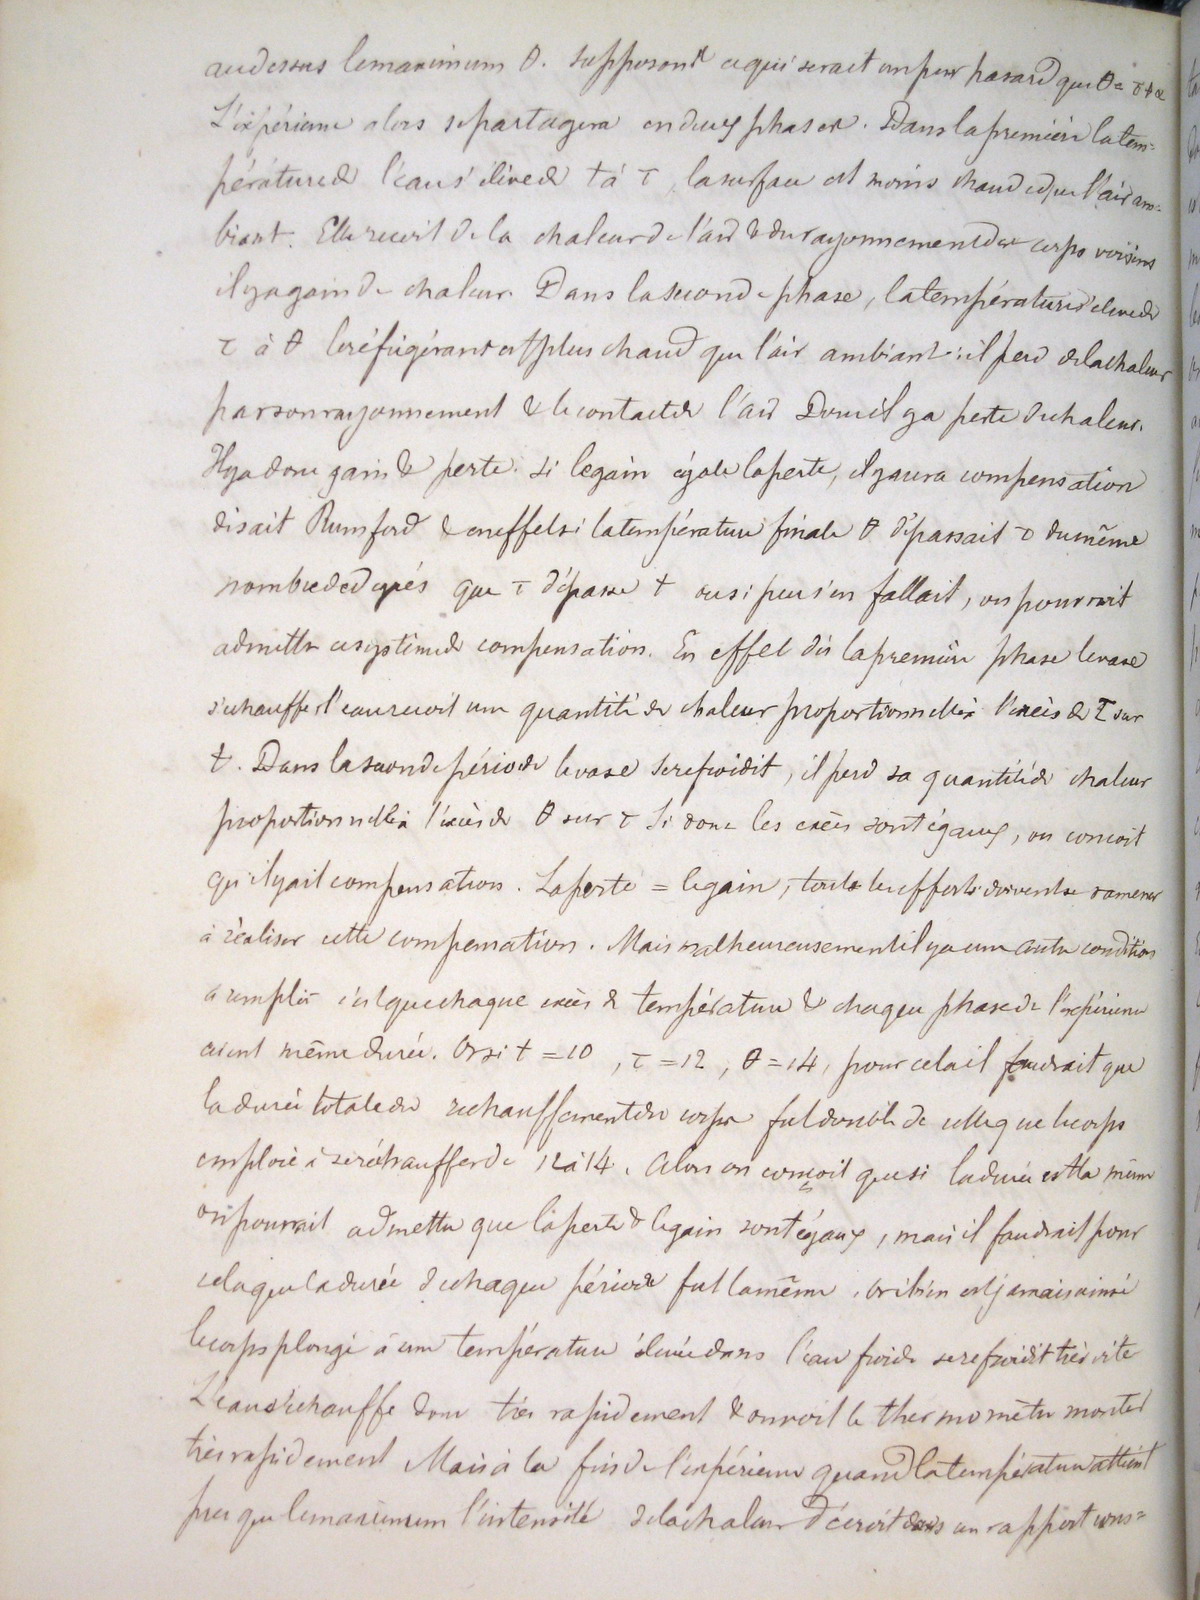 audessus le maximum θ. Supposons ce qui serait un peu hasard que θ = τ + α
L'expérience alors se partagera en deux phases. Dans la première la tem-
pérature de l'eau s'élève de t à τ, la surface est moins chaude que l'air am-
biant. Elle reçoit de la chaleur de l'air & du rayonnement des corps voisins
il y a gain de chaleur. Dans la seconde phase, la température s'élève de
τ à θ le réfrigérant est plus chaud que l'air ambiant : il perd de la chaleur
par son rayonnement & le contact de l'air Donc il y a perte de chaleur.
Il y a donc gain & perte. Si le gain égale la perte, il y aura compensation
disait Rumford & en effet si la température finale θ dépassait τ du même
nombre de degrés que τ dépasse t ou si peu s'en fallait, on pourrait
admettre ce système de compensation. En effet dès la première phase le vase
s'échauffe, l'eau reçoit une quantité de chaleur proportionnelle à l'excès de τ sur
t. Dans la seconde période le vase se refroidit, il perd sa quantité de chaleur
proportionnelle à l'excès de θ sur τ Si donc les excès sont égaux, on conçoit
qu'il y ait compensation. La perte = le gain, tous les efforts doivent se ramener
à réaliser cette compensation. Mais malheureusement il y a une autre condition
à remplir c'est que chaque excès de température & chaque phase de l'expérience
aient même durée. Or si t = 10, τ = 12, θ = 14, pour cela il faudrait que
la durée totale du réchauffement du corps fut double de celle que le corps
emploie à se réchauffer de 12 à 14. Alors on conçoit que si la durée est la même
on pourrait admettre que la perte & le gain sont égaux, mais il faudrait pour
cela que la durée de chaque période fut la même. Or il n'en est jamais ainsi
le corps plongé à une température élevée dans l'eau froide se refroidit très vite
L'eau s'échauffe donc très rapidement & on voit le thermomètre monter
très rapidement Mais à la fin de l'expérience quand la température atteint
presque le maximum l'intensité de la chaleur décroit dans un rapport cons=